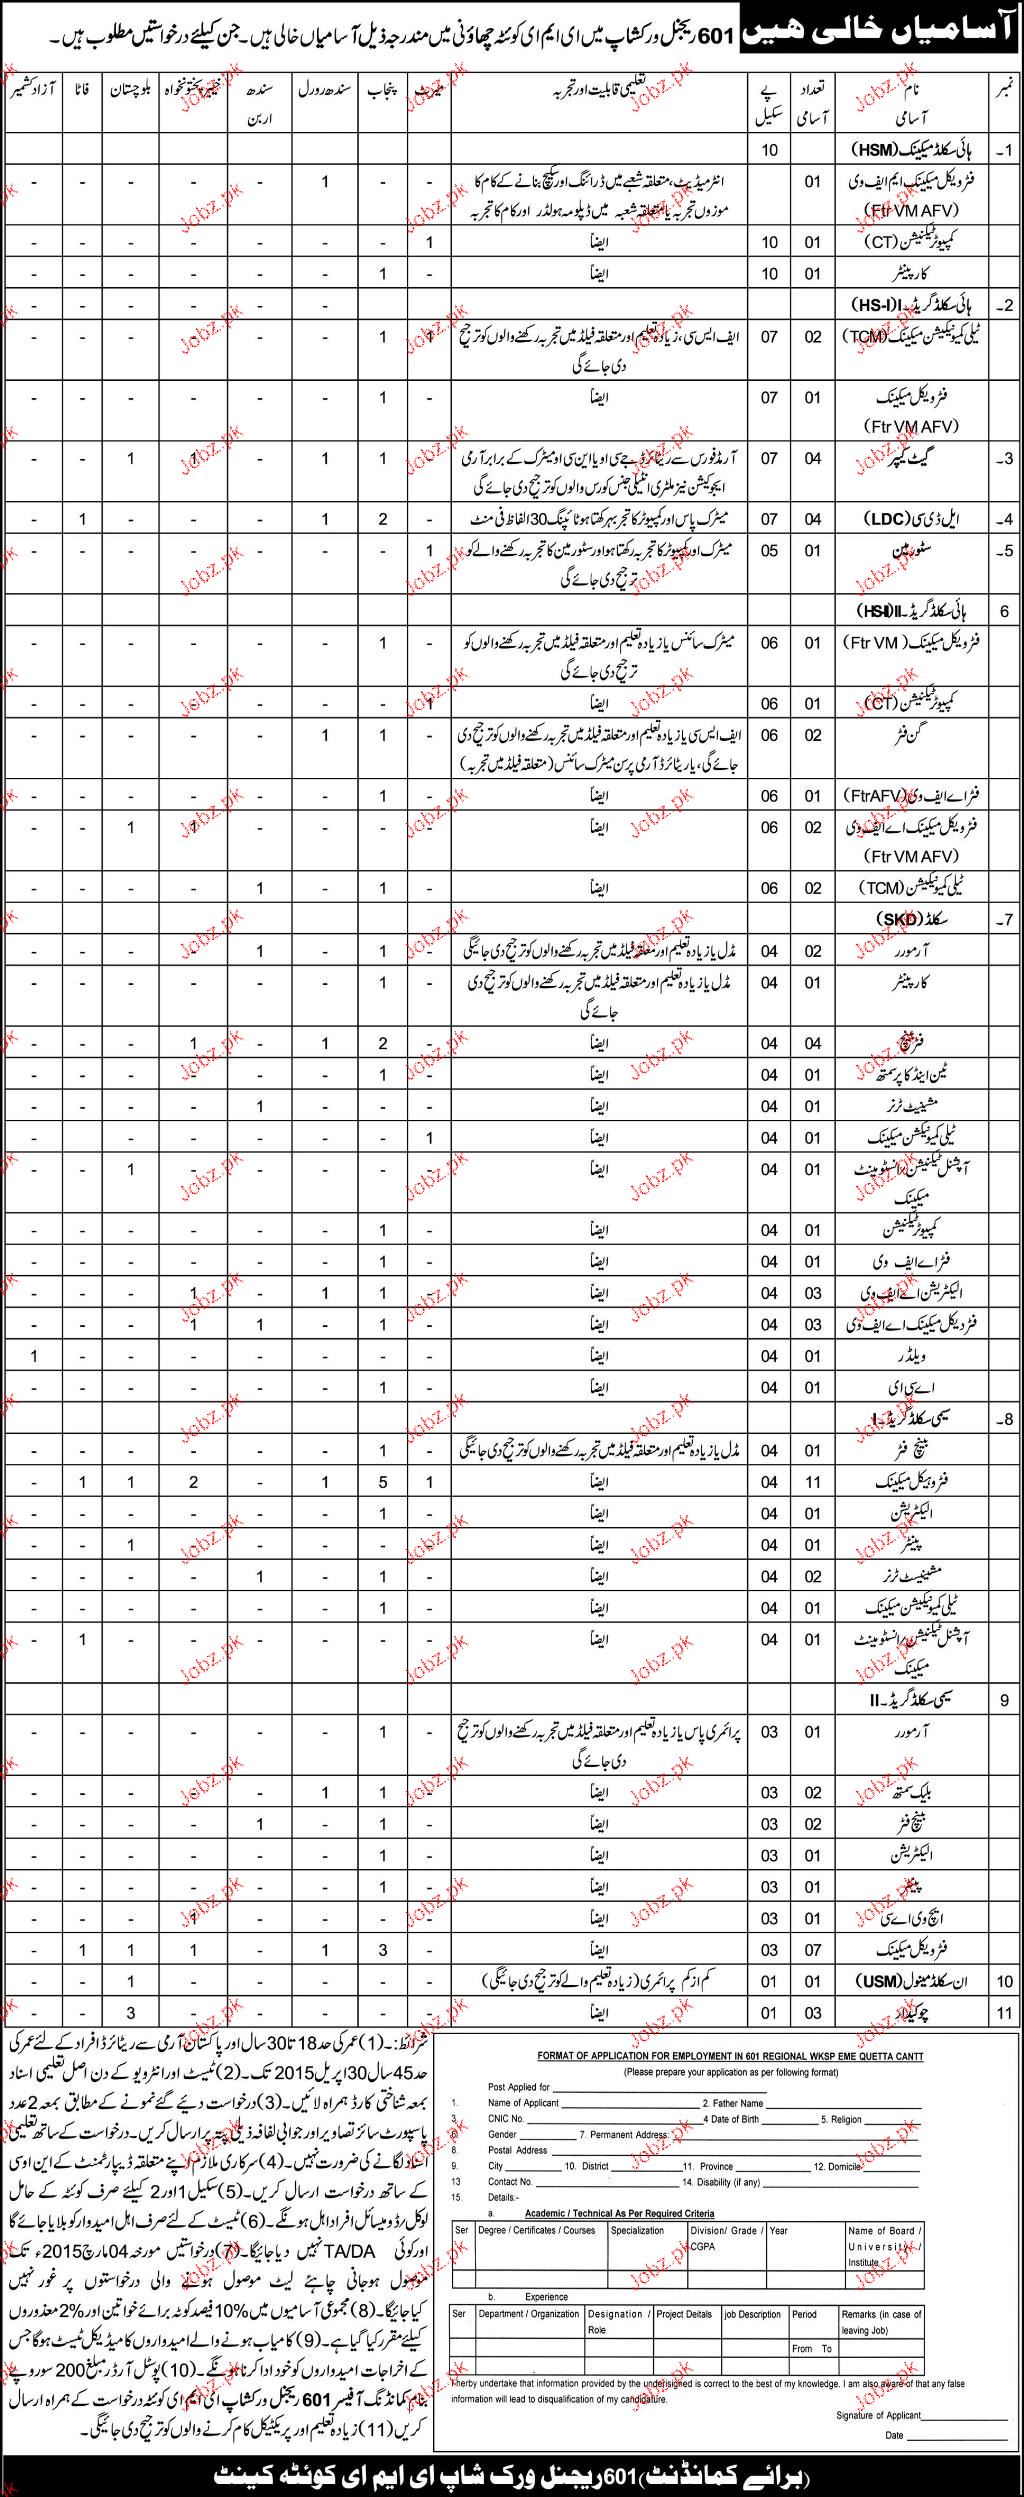 آسامیاں خالی ھیں
601 ریجنل ورکشاپ میں ای ایم ای کوئٹہ چھاؤنی میں مندرجہ ذیل آسامیاں خالی ہیں۔ جن کیلئے درخواستیں مطلوب ہیں۔
نمبر نام آسامی تعداد آسامی پے سکیل تعلیمی قابلیت اور تجربہ میرٹ پنجاب سندھ رورل سندھ اربن خیبر پختونخواہ بلوچستان فاٹا آزاد کشمیر
1۔ ہائی سکلڈ میکینک (HSM) 10
فٹر ویکل میکینک ایم ایف وی (Ftr VM AFV) 01 انٹرمیڈیٹ، متعلقہ شعبے میں ڈرائنگ اور سکیچ بنانے کے کام کا موزوں تجربہ یا متعلقہ شعبہ میں ڈپلومہ ہولڈر اور کام کا تجربہ - - 1 - - - - -
کمپیوٹر ٹیکنیشن (CT) 01 10 ایضاً 1 - - - - - - -
کارپینٹر 01 10 ایضاً - 1 - - - - - -
2۔ ہائی سکلڈ گریڈ۔I (HS-I) - - - - - -
ٹیلی کمیونیکیشن میکینک (TCM) 02 07 ایف ایس سی، زیادہ تعلیم اور متعلقہ فیلڈ میں تجربہ رکھنے والوں کو ترجیح دی جائے گی 1 1 - - - - - -
فٹر ویکل میکینک (Ftr VM AFV) 01 07 ایضاً - 1 - - - - - -
3۔ گیٹ کیپر 04 07 آرمڈ فورس سے ریٹائرڈ جے سی او یا این سی او میٹرک کے برابر آرمی ایجوکیشن نیز ملٹری انٹیلی جنس کورس والوں کو ترجیح دی جائے گی - 1 1 - 1 1 - -
4۔ ایل ڈی سی (LDC) 04 07 میٹرک پاس اور کمپیوٹر کا تجربہ رکھتا ہو ٹائپنگ 30 الفاظ فی منٹ - 2 1 - - - 1 -
5۔ سٹور مین 01 05 میٹرک اور کمپیوٹر کا تجربہ رکھتا ہو اور سٹور مین کا تجربہ رکھنے والے کو ترجیح دی جائے گی 1 - - - - - - -
6 ہائی سکلڈ گریڈ۔II (HS-II)
فٹر ویکل میکینک (Ftr VM) 01 06 میٹرک سائنس یا زیادہ تعلیم اور متعلقہ فیلڈ میں تجربہ رکھنے والوں کو ترجیح دی جائے گی - 1 - - - - - -
کمپیوٹر ٹیکنیشن (CT) 01 06 ایضاً 1 - - - - - - -
گن فٹر 02 06 ایف ایس سی یا زیادہ تعلیم اور متعلقہ فیلڈ میں تجربہ رکھنے والوں کو ترجیح دی جائے گی، یا ریٹائرڈ آرمی پرسن میٹرک سائنس (متعلقہ فیلڈ میں تجربہ) - 1 1 - - - - -
فٹر اے ایف وی (FtrAFV) 01 06 ایضاً - 1 - - - - - -
فٹر ویکل میکینک اے ایف وی (Ftr VM AFV) 02 06 ایضاً - - - - 1 1 - -
ٹیلی کمیونیکیشن (TCM) 02 06 ایضاً - 1 - 1 - - - -
7۔ سکلڈ (SKD)
آرمورر 02 04 مڈل یا زیادہ تعلیم اور متعلقہ فیلڈ میں تجربہ رکھنے والوں کو ترجیح دی جائیگی - 1 - 1 - - - -
کارپینٹر 01 04 مڈل یا زیادہ تعلیم اور متعلقہ فیلڈ میں تجربہ رکھنے والوں کو ترجیح دی جائے گی - 1 - - - - - -
فٹر بینچ 04 04 ایضاً - 2 1 - 1 - - -
ٹین اینڈ کاپر سمتھ 01 04 ایضاً - 1 - - - - - -
مشینیسٹ ٹرنر 01 04 ایضاً - - - 1 - - - -
ٹیلی کمیونیکیشن میکینک 01 04 ایضاً 1 - - - - - - -
آپٹیکل ٹیکنیشن/انسٹرومینٹ میکینک 01 04 ایضاً - - - - - 1 - -
کمپیوٹر ٹیکنیشن 01 04 ایضاً - 1 - - - - - -
فٹر اے ایف وی 01 04 ایضاً - 1 - - - - - -
الیکٹریشن اے ایف وی 03 04 ایضاً - 1 1 - 1 - - -
فٹر ویکل میکینک اے ایف وی 03 04 ایضاً - 1 - 1 1 - - -
ویلڈر 01 04 ایضاً - - - - - - - 1
اے سی ای 01 04 ایضاً - 1 - - - - - -
8۔ سیمی سکلڈ گریڈ۔I
بینچ فٹر 01 04 مڈل یا زیادہ تعلیم اور متعلقہ فیلڈ میں تجربہ رکھنے والوں کو ترجیح دی جائیگی - 1 - - - - - -
فٹر وہیکل میکینک 11 04 ایضاً 1 5 1 - 2 1 1 -
الیکٹریشن 01 04 ایضاً - 1 - - - - - -
پینٹر 01 04 ایضاً - - - - - 1 - -
مشینیسٹ ٹرنر 02 04 ایضاً - 1 - 1 - - - -
ٹیلی کمیونیکیشن میکینک 01 04 ایضاً - 1 - - - - - -
آپٹیکل ٹیکنیشن/انسٹرومینٹ میکینک 01 04 ایضاً - - - - - - 1 -
9 سیمی سکلڈ گریڈ۔II
آرمورر 01 03 پرائمری پاس یا زیادہ تعلیم اور متعلقہ فیلڈ میں تجربہ رکھنے والوں کو ترجیح دی جائے گی - 1 - - - - - -
بلیک سمتھ 02 03 ایضاً - 1 1 - - - - -
بینچ فٹر 02 03 ایضاً - 1 - 1 - - - -
الیکٹریشن 01 03 ایضاً - 1 - - - - - -
پینٹر 01 03 ایضاً - 1 - - - - - -
ایچ وی اے سی 01 03 ایضاً - - - - 1 - - -
فٹر ویکل میکینک 07 03 ایضاً - 3 1 - 1 1 1 -
10 ان سکلڈ مینول (USM) 01 01 کم از کم پرائمری (زیادہ تعلیم والے کو ترجیح دی جائیگی) - - - - - 1 - -
11 چوکیدار 03 01 ایضاً - - - - - 3 - -
شرائط:۔ (1) عمر کی حد 18 تا 30 سال اور پاکستان آرمی سے ریٹائرڈ افراد کے لئے عمر کی
حد 45 سال 30 اپریل 2015 تک۔ (2) ٹیسٹ اور انٹرویو کے دن اصل تعلیمی اسناد
بمعہ شناختی کارڈ ہمراہ لائیں۔ (3) درخواست دیئے گئے نمونے کے مطابق بمعہ 2 عدد
پاسپورٹ سائز تصاویر اور جوابی لفافہ ذیلی پتہ پر ارسال کریں۔ درخواست کے ساتھ تعلیمی
اسناد لگانے کی ضرورت نہیں۔ (4) سرکاری ملازم اپنے متعلقہ ڈیپارٹمنٹ کے این او سی
کے ساتھ درخواست ارسال کریں۔ (5) سکیل 1 اور 2 کیلئے صرف کوئٹہ کے حامل
لوکل/ڈومیسائل افراد اہل ہونگے۔ (6) ٹیسٹ کے لئے صرف اہل امیدوار کو بلایا جائے گا
اور کوئی TA/DA نہیں دیا جائیگا۔ (7) درخواستیں مورخہ 04 مارچ 2015ء تک
موصول ہوجانی چاہئے لیٹ موصول ہونے والی درخواستوں پر غور نہیں
کیا جائیگا۔ (8) مجموعی آسامیوں میں 10% فیصد کوٹہ برائے خواتین اور 2% معذوروں
کیلئے مقرر کیا گیا ہے۔ (9) کامیاب ہونے والے امیدواروں کا میڈیکل ٹیسٹ ہوگا جس
کے اخراجات امیدواروں کو خود ادا کرنا ہونگے۔ (10) پوسٹل آرڈر مبلغ 200 سو روپے
بنام کمانڈنگ آفیسر 601 ریجنل ورکشاپ ای ایم ای کوئٹہ درخواست کے ہمراہ ارسال
کریں (11) زیادہ تعلیم اور پریکٹیکل کام کرنے والوں کو ترجیح دی جائیگی۔
FORMAT OF APPLICATION FOR EMPLOYMENT IN 601 REGIONAL WKSP EME QUETTA CANTT
(Please prepare your application as per following format)
Post Applied for
1. Name of Applicant 2. Father Name
3. CNIC No. 4 Date of Birth 5. Religion
6. Gender 7. Permanent Address:
8. Postal Address
9. City 10. District 11. Province 12. Domicile
13 Contact No. 14. Disability (if any)
15. Details:-
a. Academic / Technical As Per Required Criteria
Ser Degree / Certificates / Courses Specialization Division/ Grade / CGPA Year Name of Board / University / Institute
b. Experience
Ser Department / Organization Designation / Role Project Deitals job Description Period From To Remarks (in case of leaving Job)
I hereby undertake that information provided by the undersigned is correct to the best of my knowledge. I am also aware of that any false
information will lead to disqualification of my candidature.
Signature of Applicant
Date
(برائے کمانڈنٹ) 601 ریجنل ورک شاپ ای ایم ای کوئٹہ کینٹ
Jobz.pk